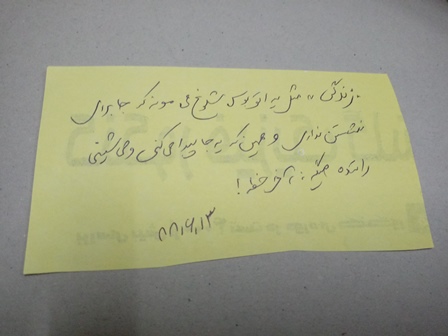 زندگی مثل یه اتوبوس شلوغ می مونه که جا برای
نشستن نداری و همین که یه جا پیدا می کنی و می شینی
راننده میگه: آخر خطه!
۸۸،۶،۱۳